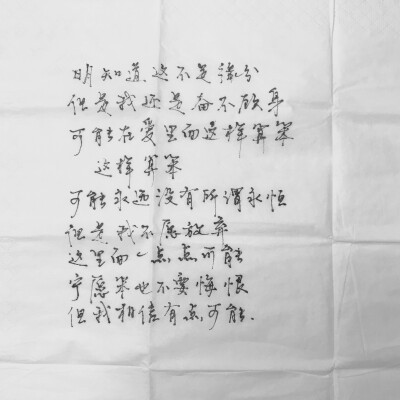 明知道这不是缘分
但是我还是奋不顾身
可能在爱里面这样算笨
这样算笨
可能永远没有所谓永恒
但是我不愿放弃
这里面一点点可能
宁愿笨也不要悔恨
但我相信有点可能.